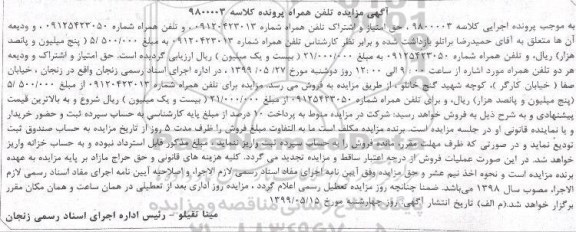 آگهی مزایده تلفن همراه پرونده کلاسه ۹۸۰۰۰۰۳
به موجب پرونده اجرایی کلاسه ۹۸۰۰۰۰۳ ، حق امتیاز و اشتراک تلفن همراه شماره ۰۹۱۲۰۴۲۳۰۱۳ ، و تلفن همراه شماره ۰۹۱۲۵۴۲۳۰۵۰ و ودیعه
آن ها متعلق به آقای حمیدرضا براتلو بازداشت شده و برابر نظر کارشناس تلفن همراه شماره ۰۹۱۲۰۴۲۳۰۱۳ به مبلغ ۵/۵۰۰/۰۰۰ ( پنج میلیون و پانصد
هزار) ریال، و تلفن همراه شماره ۰۹۱۲۵۴۲۳۰۵۰ به مبلغ ۲۱/۰۰۰/۰۰۰ ( بیست و یک میلیون ) ریال ارزیابی گردیده است. حق امتیاز و اشتراک و ودیعه
هر دو تلفن همراه مورد اشاره از ساعت ۹:۰۰ الی ۱۲:۰۰ روز دوشنبه مورخ ۱۳۹۹/۰۵/۲۷ در اداره اجرای اسناد رسمی زنجان واقع در زنجان ، خیابان
صفا ( خیابان کارگر )، کوچه شهید گنج خانلو ، از طریق مزایده به فروش می رسد. مزایده برای تلفن همراه شماره ۰۹۱۲۰۴۲۳۰۱۳ از مبلغ ۵/۵۰۰/۰۰۰
(پنج میلیون و پانصد هزار) ریال، و برای تلفن همراه شماره ۰۹۱۲۵۴۲۳۰۵۰ از مبلغ ۲۱/۰۰۰/۰۰۰ ( بیست و یک میلیون ) ریال شروع و به بالاترین قیمت
پیشنهادی و به شرح ذیل به فروش خواهد رسید: شرکت در مزایده منوط به پرداخت ۱۰ درصد از مبلغ پایه کارشناسی به حساب سپرده ثبت و حضور خریدار
و یا نماینده قانونی او در جلسه مزایده است. برنده مزایده مکلف است ما به التفاوت مبلغ فروش را ظرف مدت ۵ روز از تاریخ مزایده به حساب صندوق ثبت
تودیع نماید و در صورتی که ظرف مهلت مقرر مانده فروش را به حساب سپرده ثبت واریز ننماید، مبلغ مذکور قابل استرداد نبوده و به حساب خزانه واریز
خواهد شد. در این صورت عملیات فروش از درجه اعتبار ساقط و مزایده تجدید می گردد. کلیه هزینه های قانونی و حق حراج مازاد بر پایه مزایده به عهده
برنده مزایده است و نحوه اخذ نیم عشر و حق مزایده وفق آیین نامه اجرای مفاد اسناد رسمی لازم الاجرا و اصلاحیه آیین نامه اجرای مفاد اسناد رسمی لازم
الاجرا، مصوب سال ۱۳۹۸ می‌باشد. ضمنا چنانچه روز مزایده تعطیل رسمی اعلام گردد ، مزایده روز اداری بعد از تعطیلی در همان ساعت و همان مکان مقرر
برگزار خواهد شد.(م الف) تاریخ انتشار آگهی: روز چهارشنبه مورخ ۱۳۹۹/۰۵/۱۵
مینا تقیلو – رئیس اداره اجرای اسناد رسمی زنجان